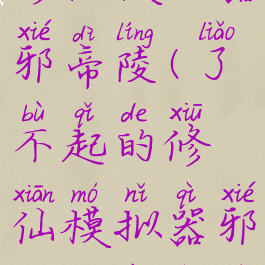 xié dì líng liǎo
邪帝陵(了
bù qǐ de xiū
不起的修
xiān mó nǐ qì xié
仙模拟器邪